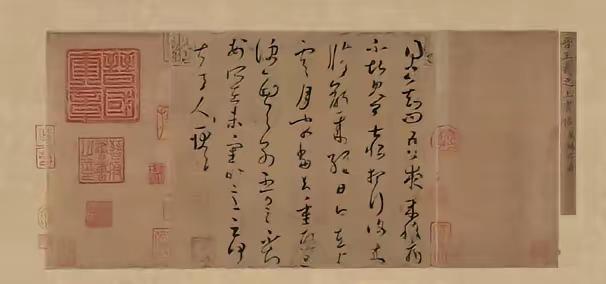 晉王羲之上虞帖
得書知問吾夜來腹痛
不堪見卿甚恨想行復來
脩齡來經日今在上
虞月末當去重熙旦
便西與別不可言不知
安所在未審時意云何
甚令人耿耿